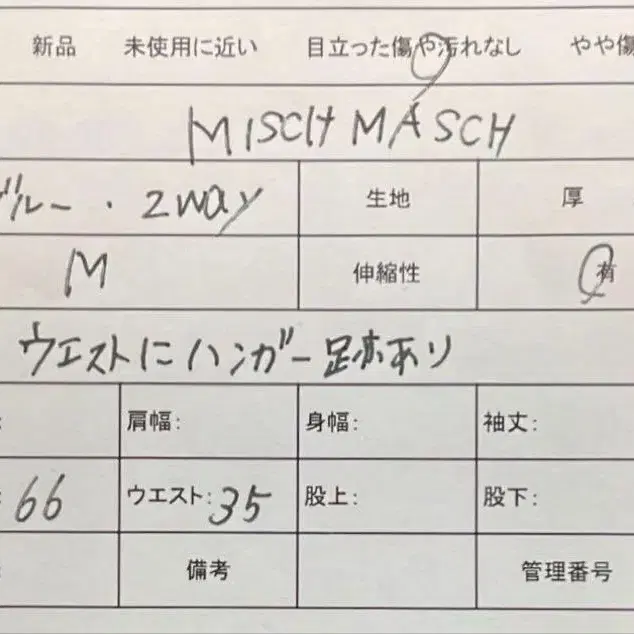 新品 未使用に近い 目立った傷や汚れなし やや傷
MISCH MASCH
ブルー・2way 生地 厚
M 伸縮性 有
ウエストにハンガー跡あり
: 肩幅: 身幅: 袖丈:
: 66 ウエスト: 35 股上: 股下:
: 備考 管理番号